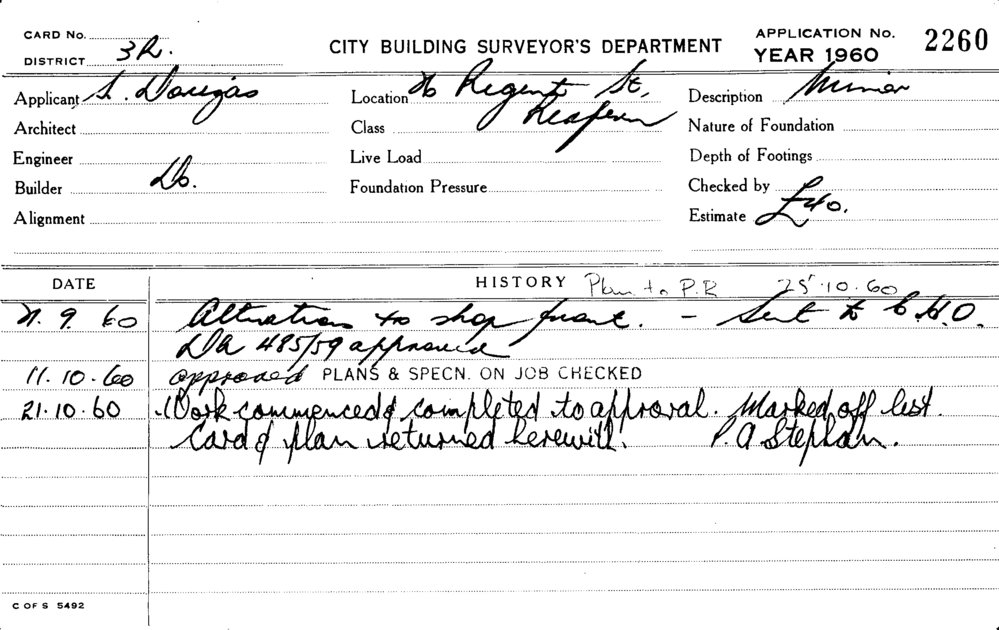 CARD No.
DISTRICT 3R.
CITY BUILDING SURVEYOR'S DEPARTMENT
APPLICATION No. 2260
YEAR 1960
Applicant S.
Location Regent St, Redfern
Description Minor
Architect
Class
Nature of Foundation
Engineer
Live Load
Depth of Footings
Builder Do.
Foundation Pressure
Checked by
Alignment
Estimate £40.
DATE
HISTORY Plan to P.R 25.10.60
9. 60 Alterations to shop front. - Sent to C.H.O.
DA 485/59 approved
11.10.60 approved PLANS & SPECN. ON JOB CHECKED
21.10.60 Work commenced & completed to approval. Marked off list.
Card & plan returned herewith. P. A Stephan.
C OF S 5492